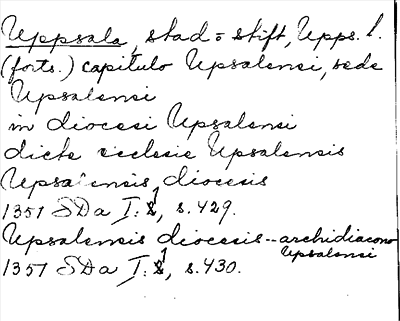 Uppsala, stad o stift, Upps. l.
(forts.) capitulo Upsalensi, sede
Upsalensi
in diocesi Upsalensi
dicte ecclesie Upsalensis
Upsalensis diocesis
1351 SDa I:1, s. 429.
Upsalensis diocesis -- archidiacono
Upsalensi
1357 SDa I:1, s. 430.